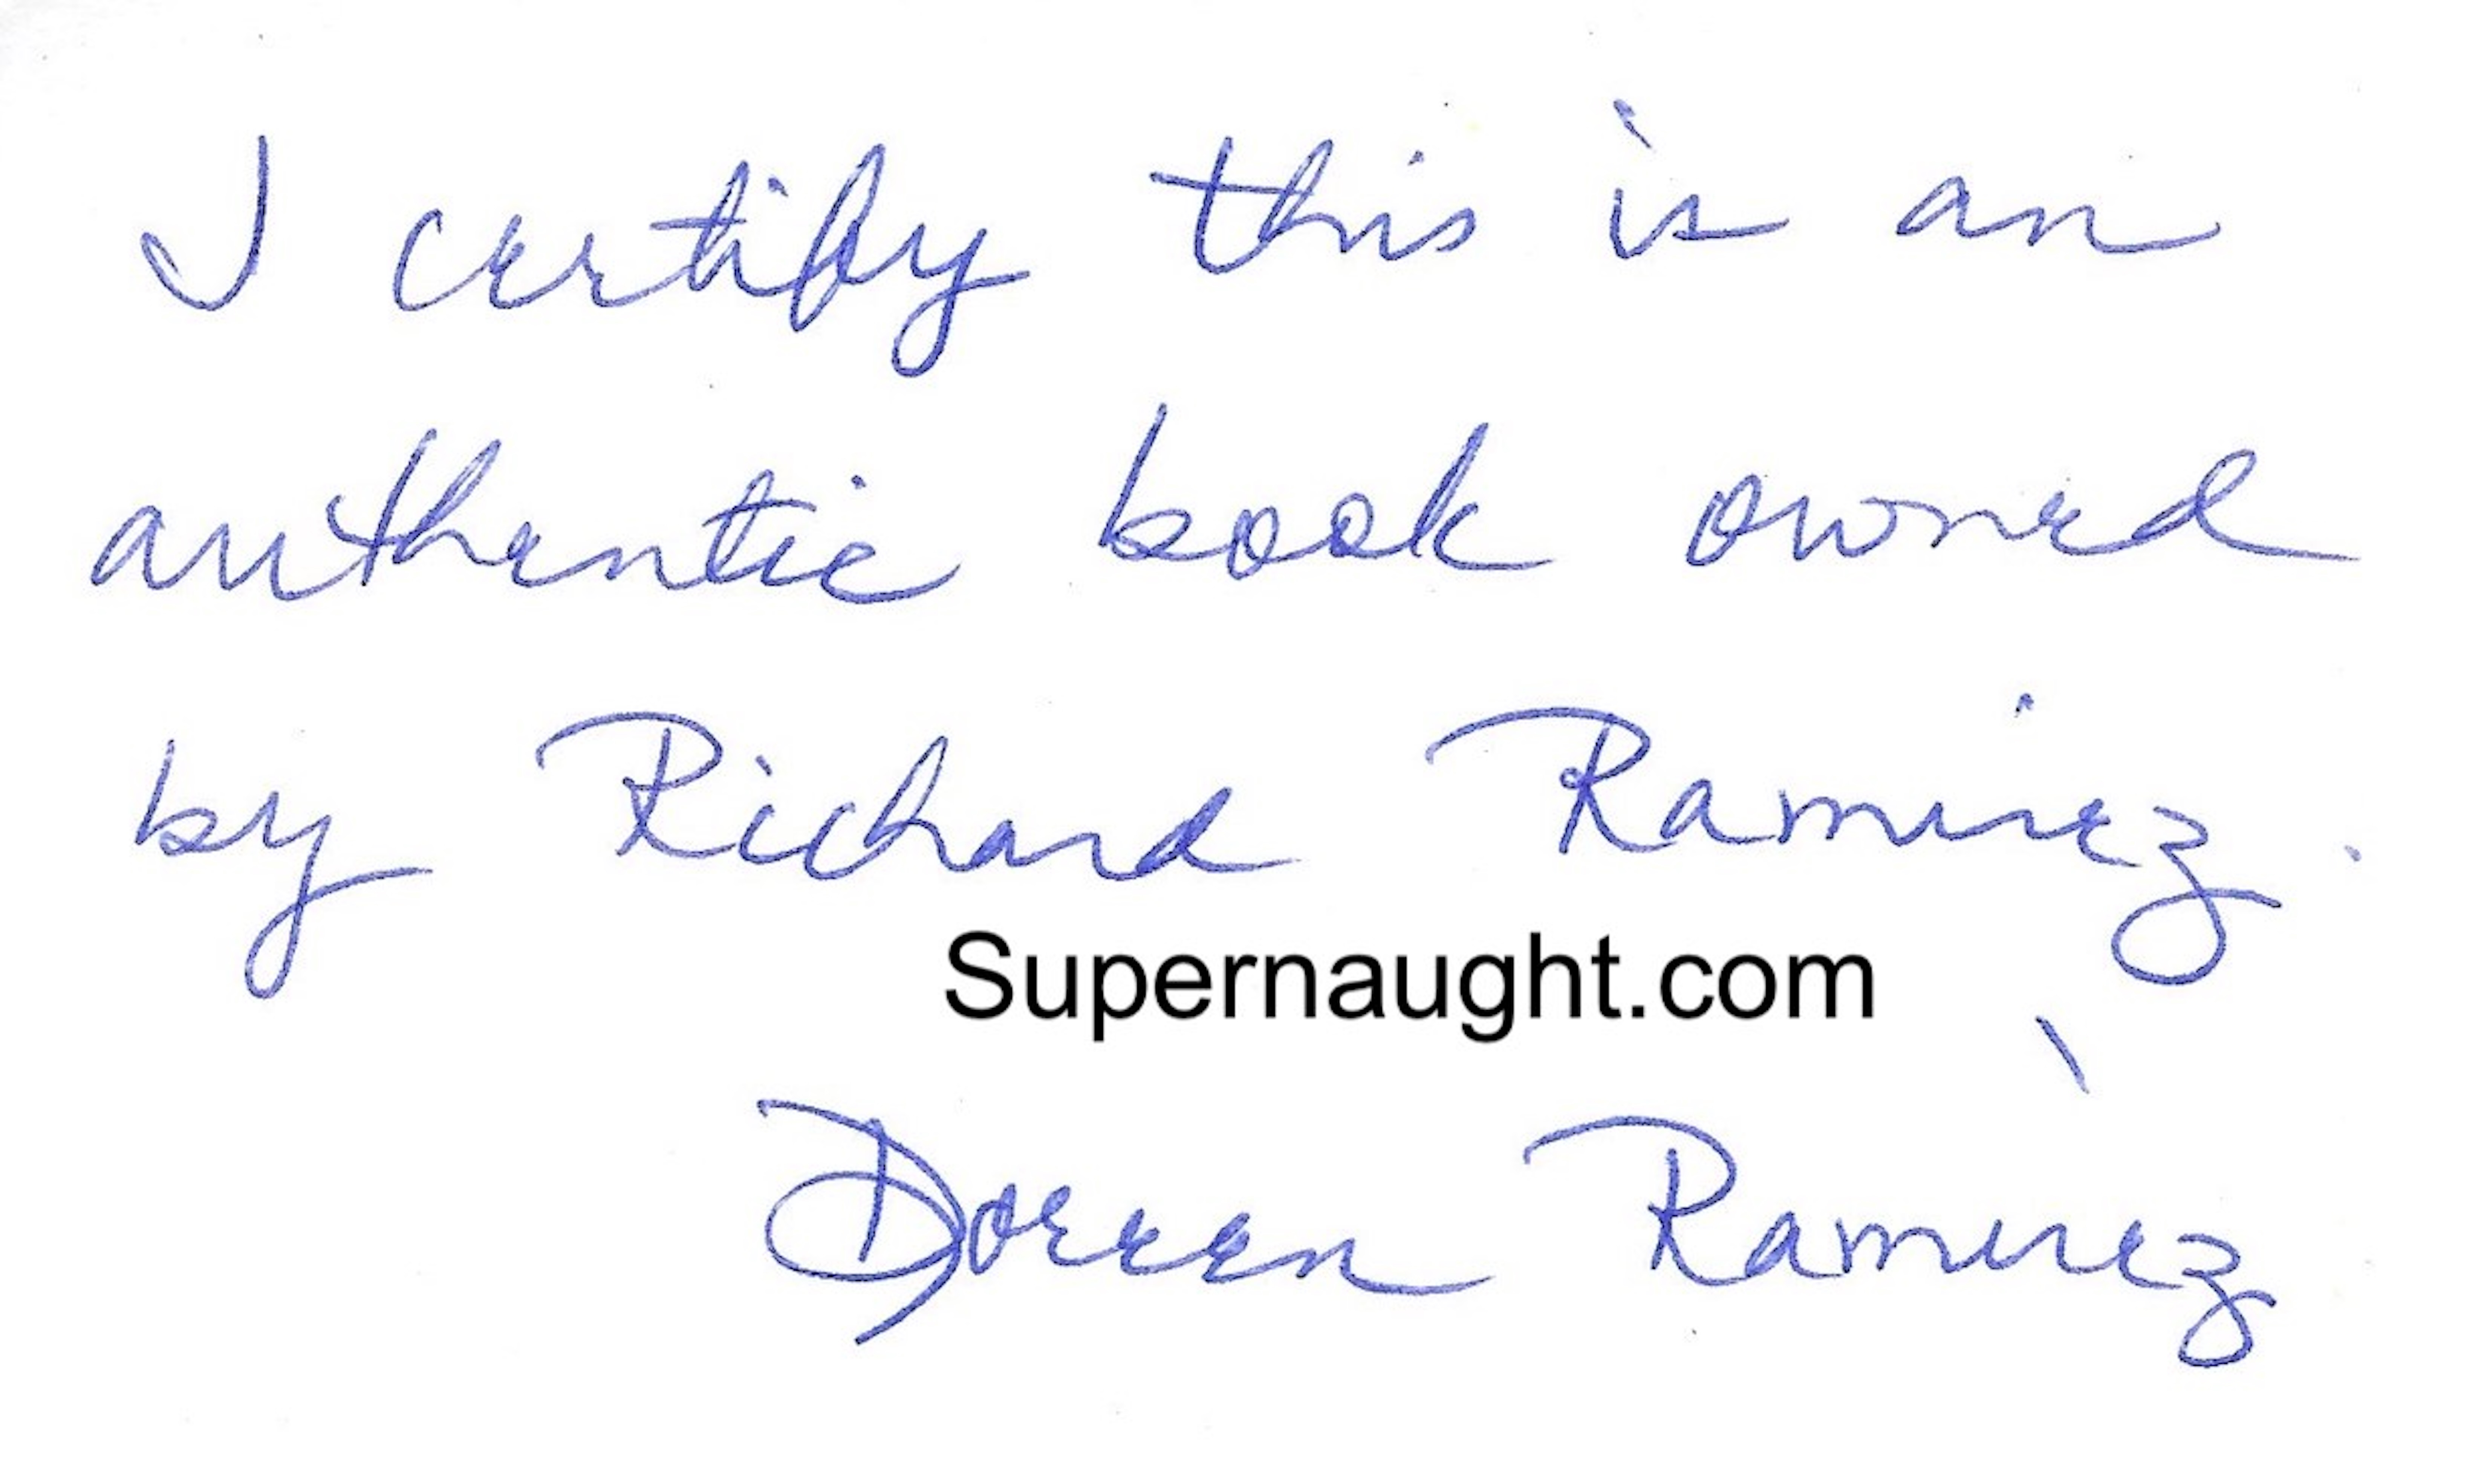 I certify this is an
authentic book owned
by Richard Ramirez.
Supernaught.com
Doreen Ramirez